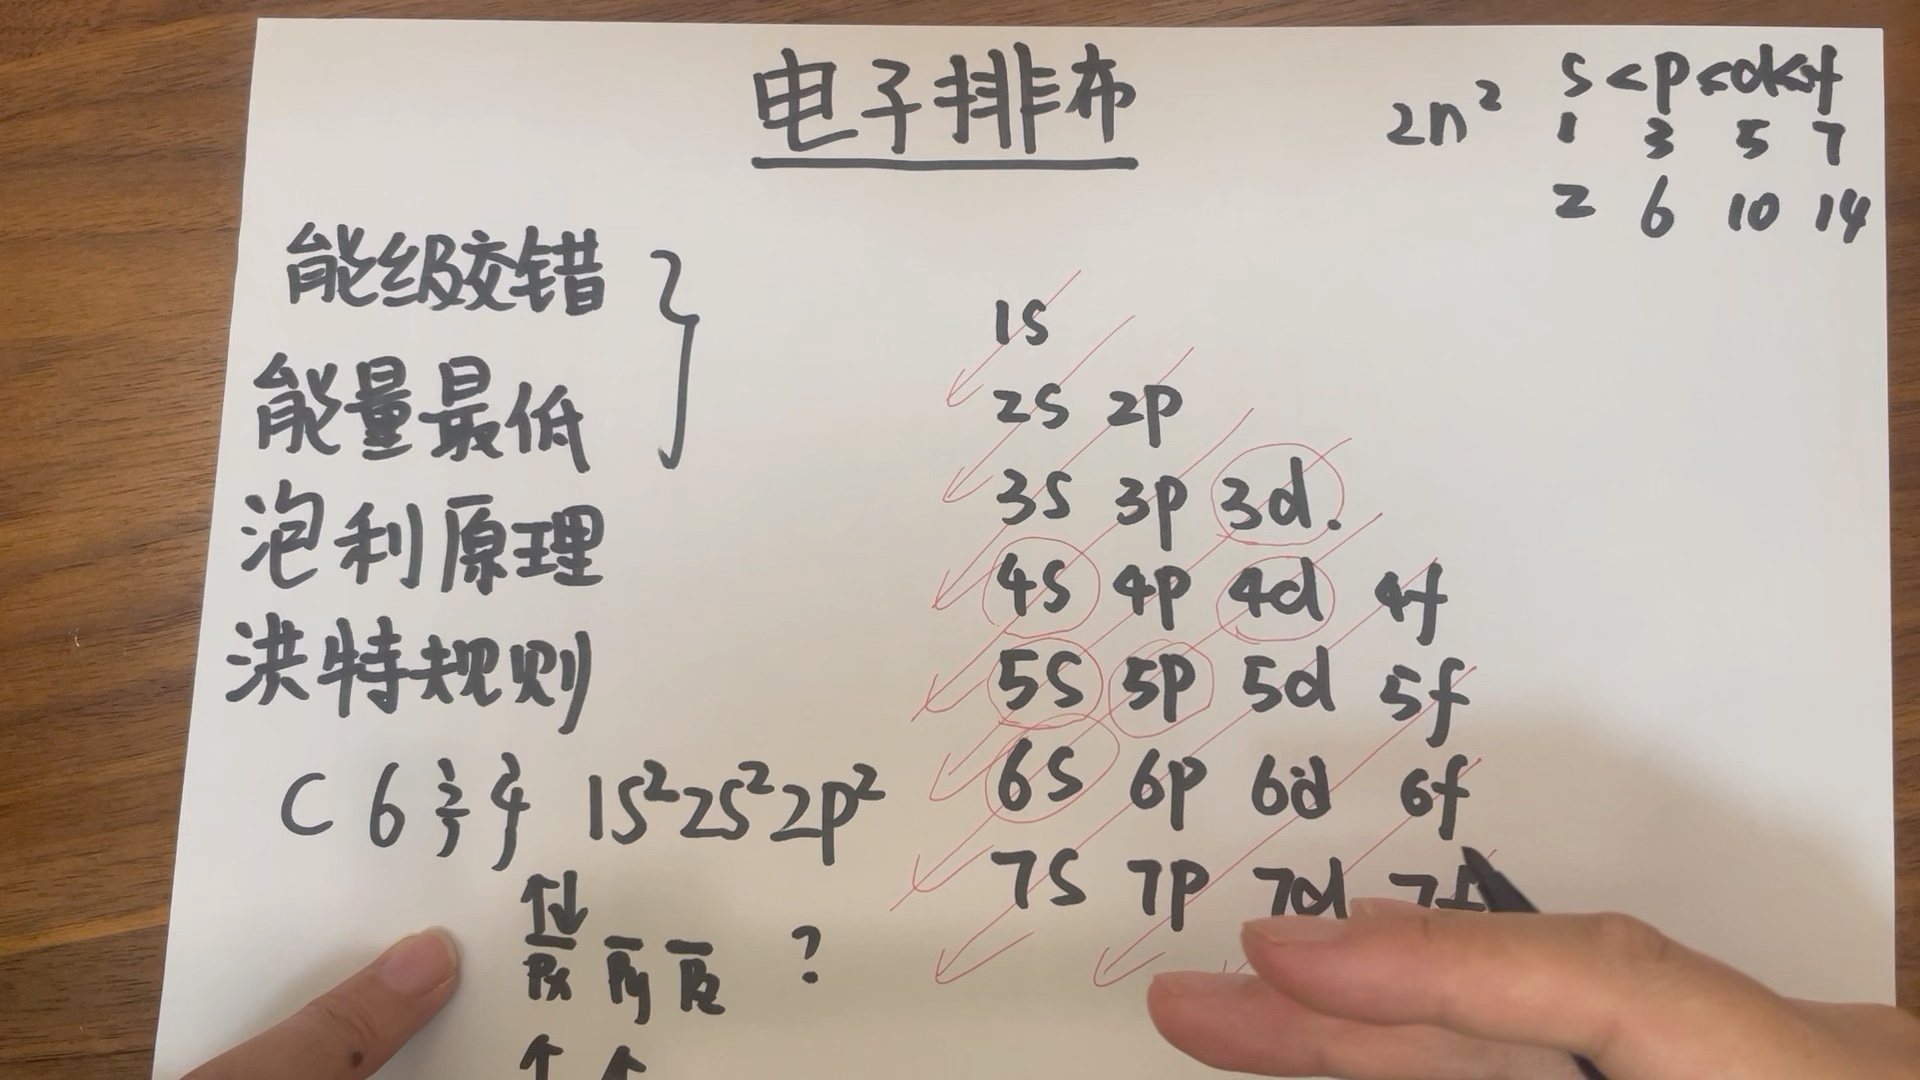 电子排布
2n² s<p<d<f
1 3 5 7
2 6 10 14
能级交错
能量最低
泡利原理
洪特规则
C 6 1s²2s²2p²
↑↓
Px Py Pz ?
↑ ↑
1s
2s 2p
3s 3p 3d.
4s 4p 4d 4f
5s 5p 5d 5f
6s 6p 6d 6f
7s 7p 7d